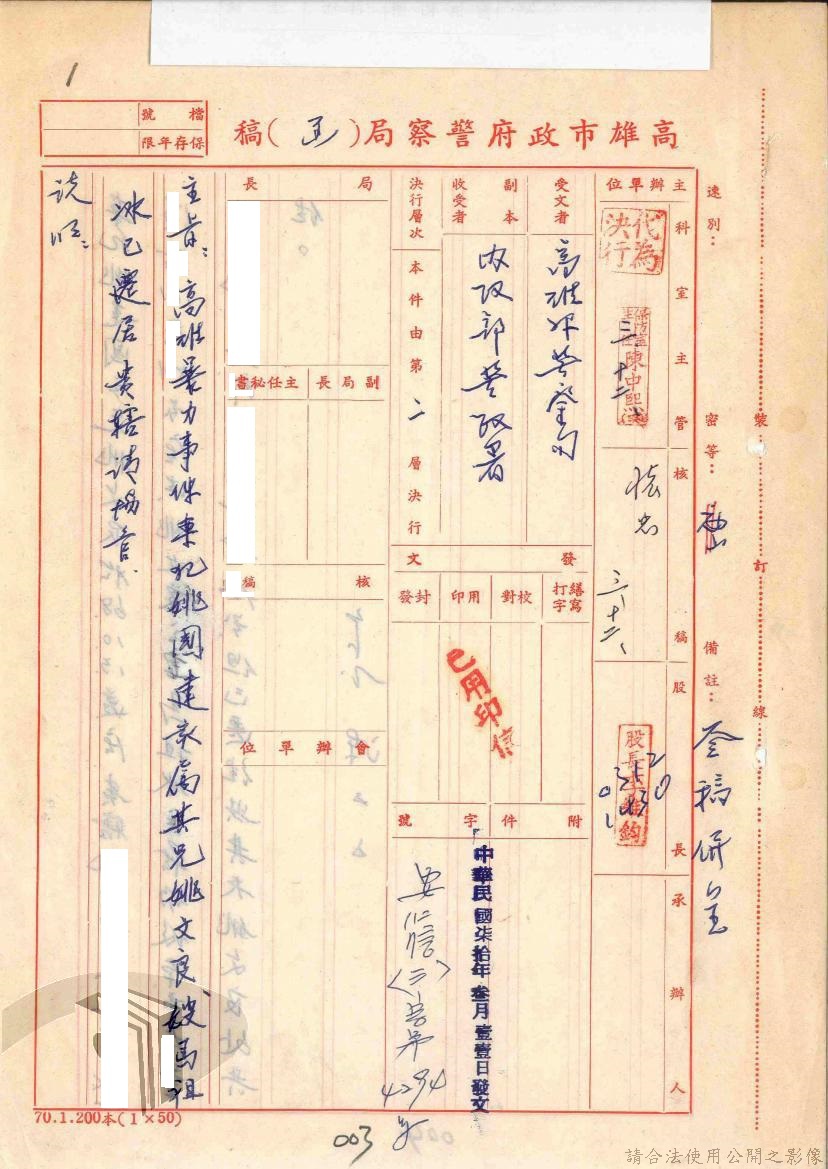 1
檔號
保存年限
高雄市政府警察局(函)稿
速別：
密等：密
備註：全稿併呈
裝
訂
線
主辦單位
科室主管
代為決行
陳中熙
三、十二、
核稿
三、十二、
股長
股長
承辦人
受文者
高雄縣警察局
副本收受者
內政部警政署
決行層次
本件由第二層決行
發文
繕寫打字
校對
用印
封發
已用印信
附件
字號
中華民國柒拾年叁月壹壹日發文
4294
局長
副局長
主任秘書
核稿
會辦單位
主旨：高雄暴力事件案犯姚國建家屬其兄姚文良、嫂馬祖
冰已遷居貴轄請協查
說明：
70.1.200本(1×50)
003
請合法使用公開之影像